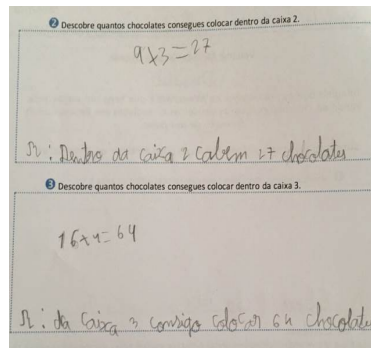 2 Descobre quantos chocolates consegues colocar dentro da caixa 2.
9x3=27
R: Dentro da caixa 2 cabem 27 chocolates
3 Descobre quantos chocolates consegues colocar dentro da caixa 3.
16x4=64
R: da Caixa 3 consigo colocar 64 chocolate